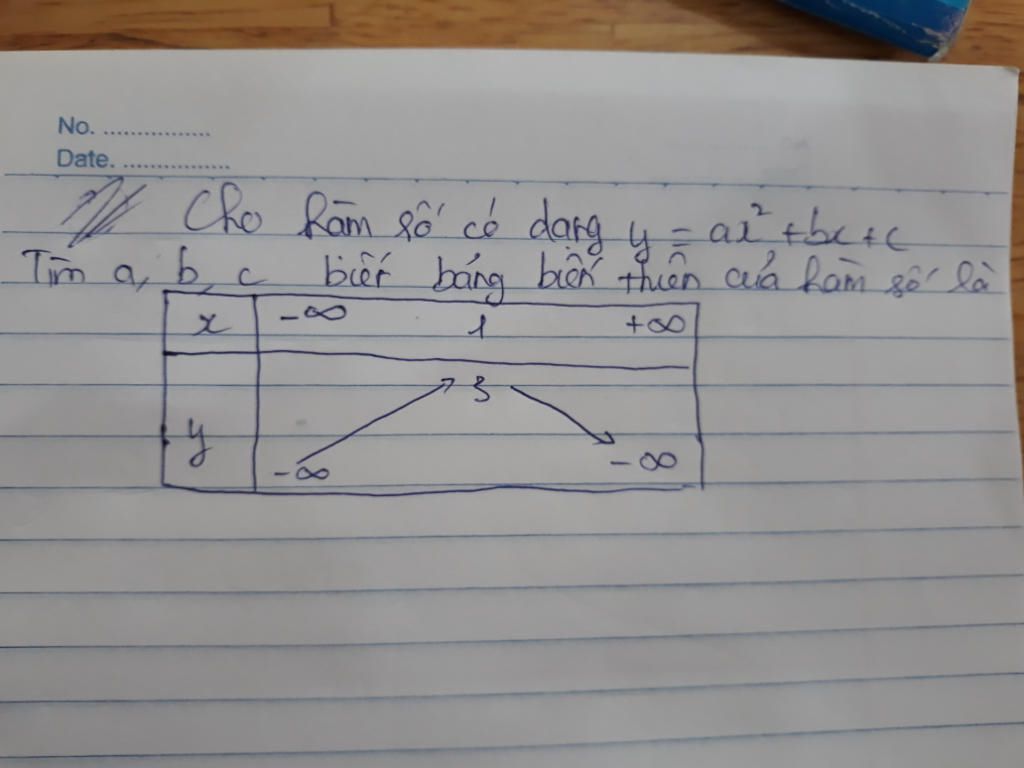 No. ................
Date. ................
Cho hàm số có dạng y = ax² + bx + c
Tìm a, b, c biết bảng biến thiên của hàm số là
x -∞ 1 +∞
3
y
-∞ -∞